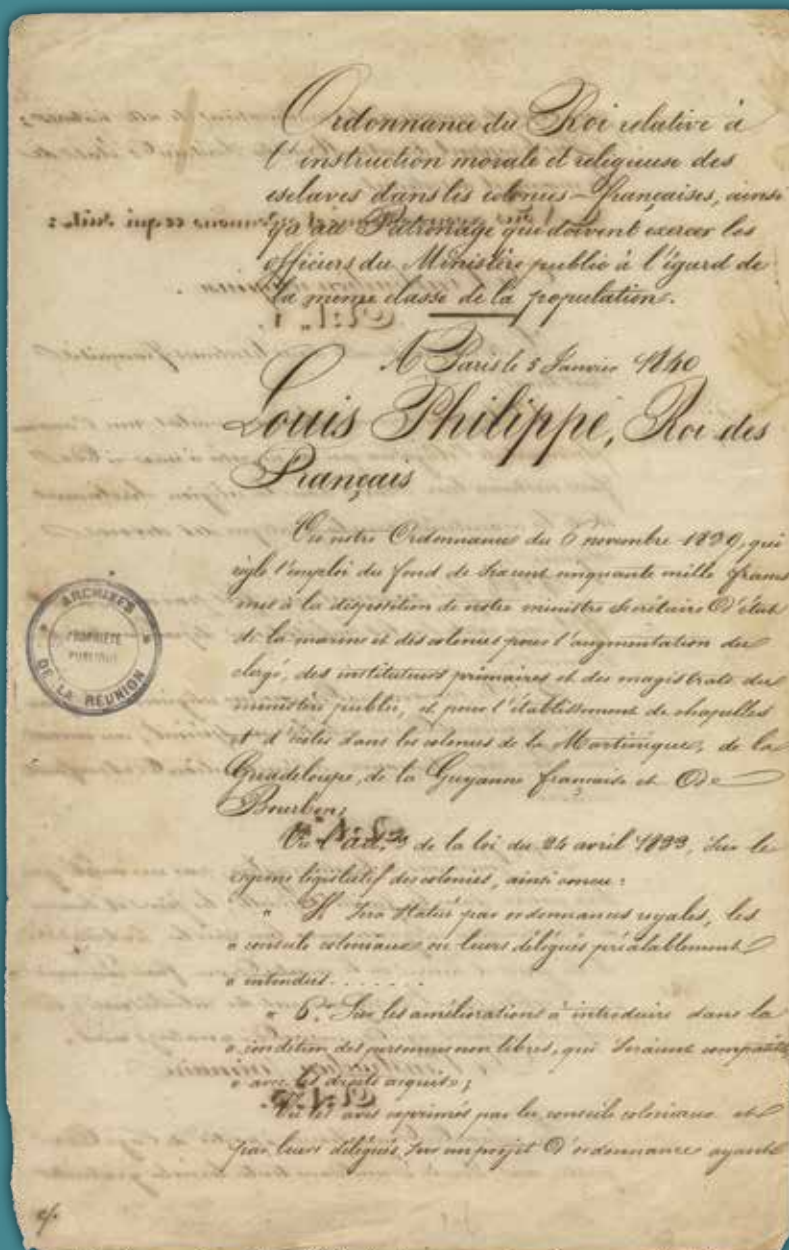 Ordonnance du Roi relative à
l'instruction morale et religieuse des
esclaves dans les colonies françaises, ainsi
qu'au Patronage que doivent exercer les
officiers du Ministère public à l'égard de
la même classe de la population.
A Paris le 5 Janvier 1840
Louis Philippe, Roi des
Français
Vu notre Ordonnance du 6 novembre 1839, qui
règle l'emploi du fond de Six cent cinquante mille francs
mis à la disposition de notre ministre Secrétaire d'état
de la marine et des colonies pour l'augmentation du
clergé, des instituteurs primaires et des magistrats du
ministère public, et pour l'établissement de chapelles
et d'écoles dans les colonies de la Martinique, de la
Guadeloupe, de la Guyanne française et de
Bourbon;
Vu l'art. 3 de la loi du 24 avril 1833, Sur le
régime législatif des colonies, ainsi conçu :
" Il Sera Statué par ordonnances royales, les
" conseils coloniaux ou leurs délégués préalablement
" entendus . . . . . .
" 6° Sur les améliorations à introduire dans la
" condition des personnes non libres, qui Seraient compatibles
" avec les droits acquis ;
Vu les avis exprimés par les conseils coloniaux et
par leurs délégués, Sur un projet d'ordonnance ayant
ARCHIVES
PROPRIETE
PUBLIQUE
DE LA REUNION